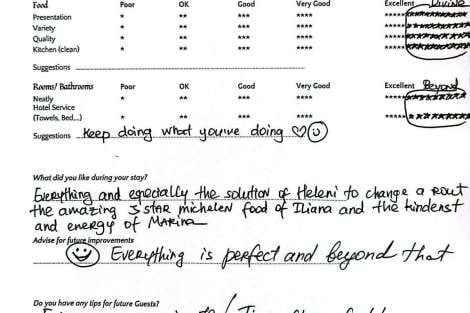 Food Poor OK Good Very Good Excellent Divine
Presentation * ** *** **** *****
Variety * ** *** **** *****
Quality * ** *** **** *****
Kitchen (clean) * ** *** **** *****
Suggestions
Rooms/ Bathrooms Poor OK Good Very Good Excellent Beyond
Neatly * ** *** **** *****
Hotel Service
(Towels, Bed...) * ** *** **** *****
Suggestions keep doing what you've doing ♡☺
What did you like during your stay?
Everything and especially the solution of Heleni to change a
the amazing 5 STAR michelen food of Iliana and the kindenst
and energy of MARINA
Advise for future improvements
☺ Everything is perfect and beyond that
Do you have any tips for future Guests?